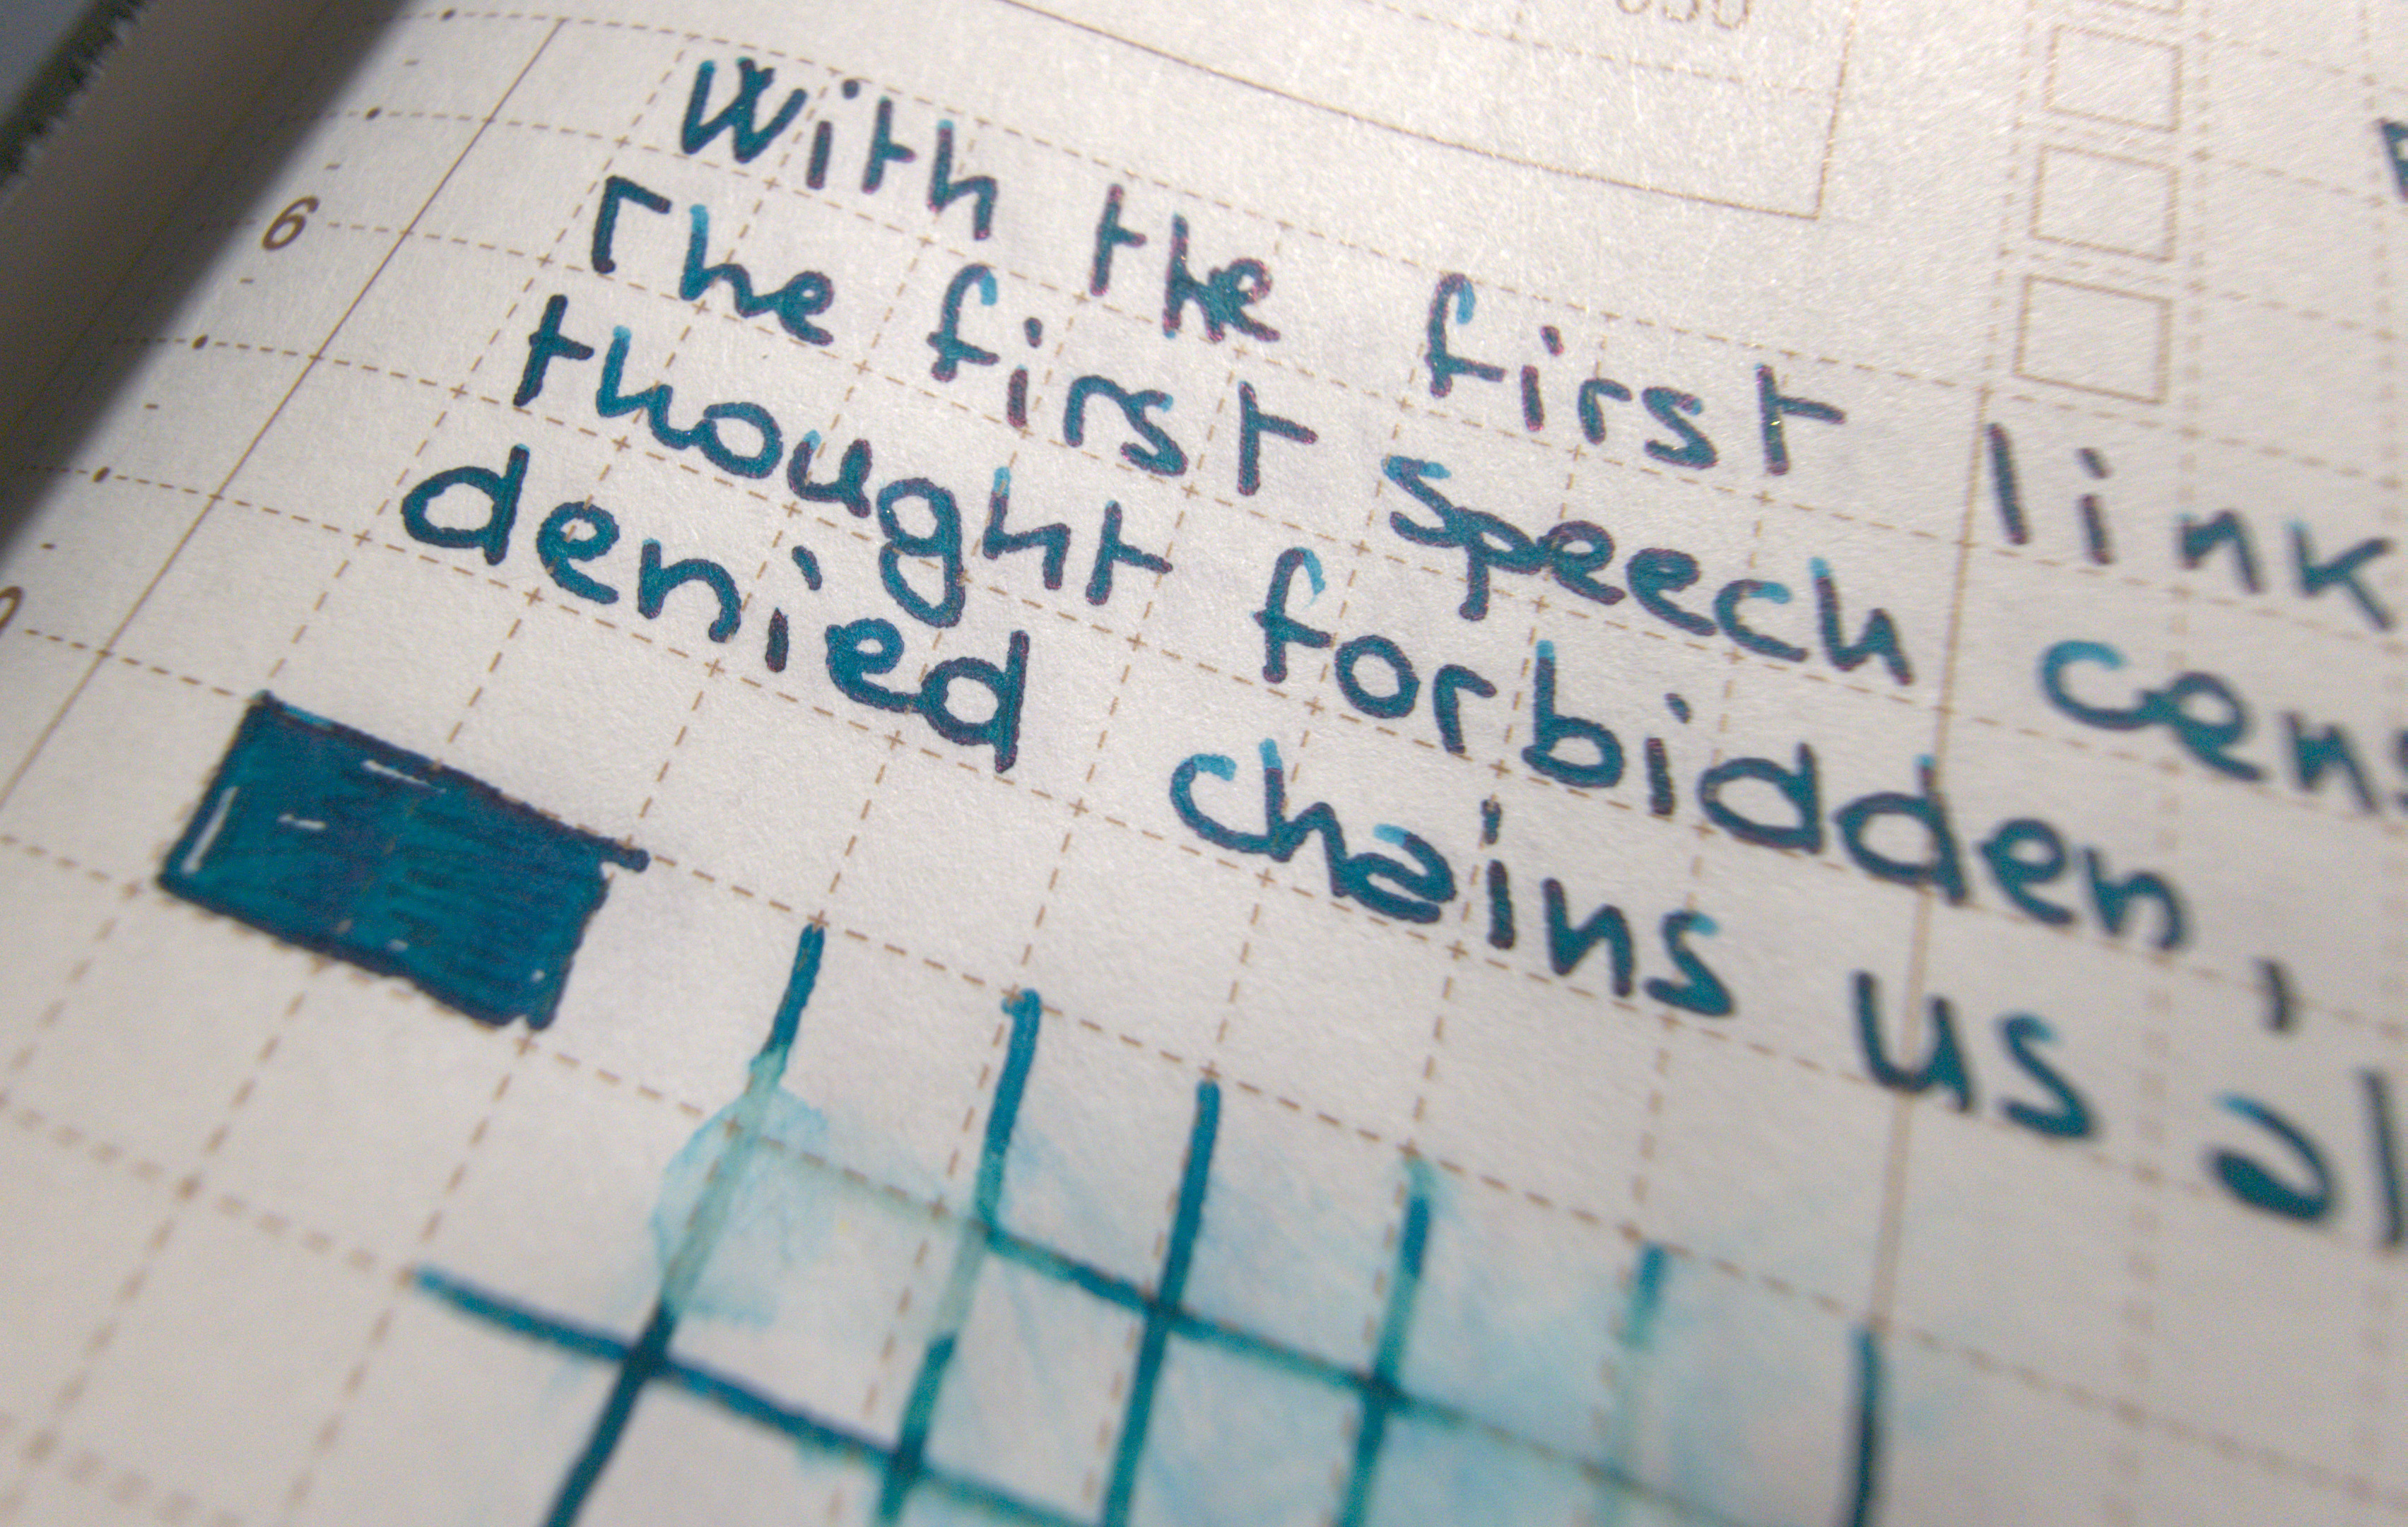 030
6
With the first link
The first speech cens
thought forbidden,
denied chains us al